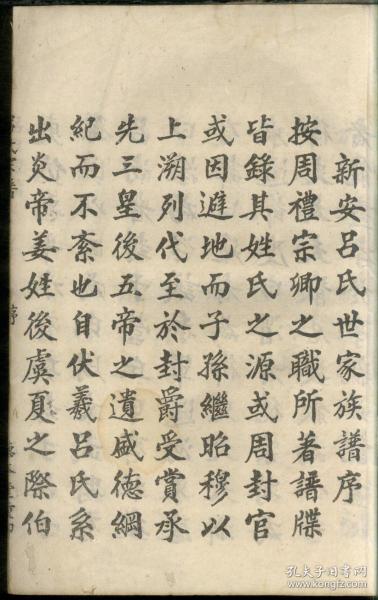 新安吕氏世家族譜序
按周禮宗卿之職所著譜牒
皆錄其姓氏之源或周封官
或因避地而子孫繼昭穆以
上溯列代至於封爵受賞承
先三皇後五帝之遺盛德綱
紀而不紊也自伏羲吕氏系
出炎帝姜姓後虞夏之際伯
孔夫子旧书网
www.kongfz.com